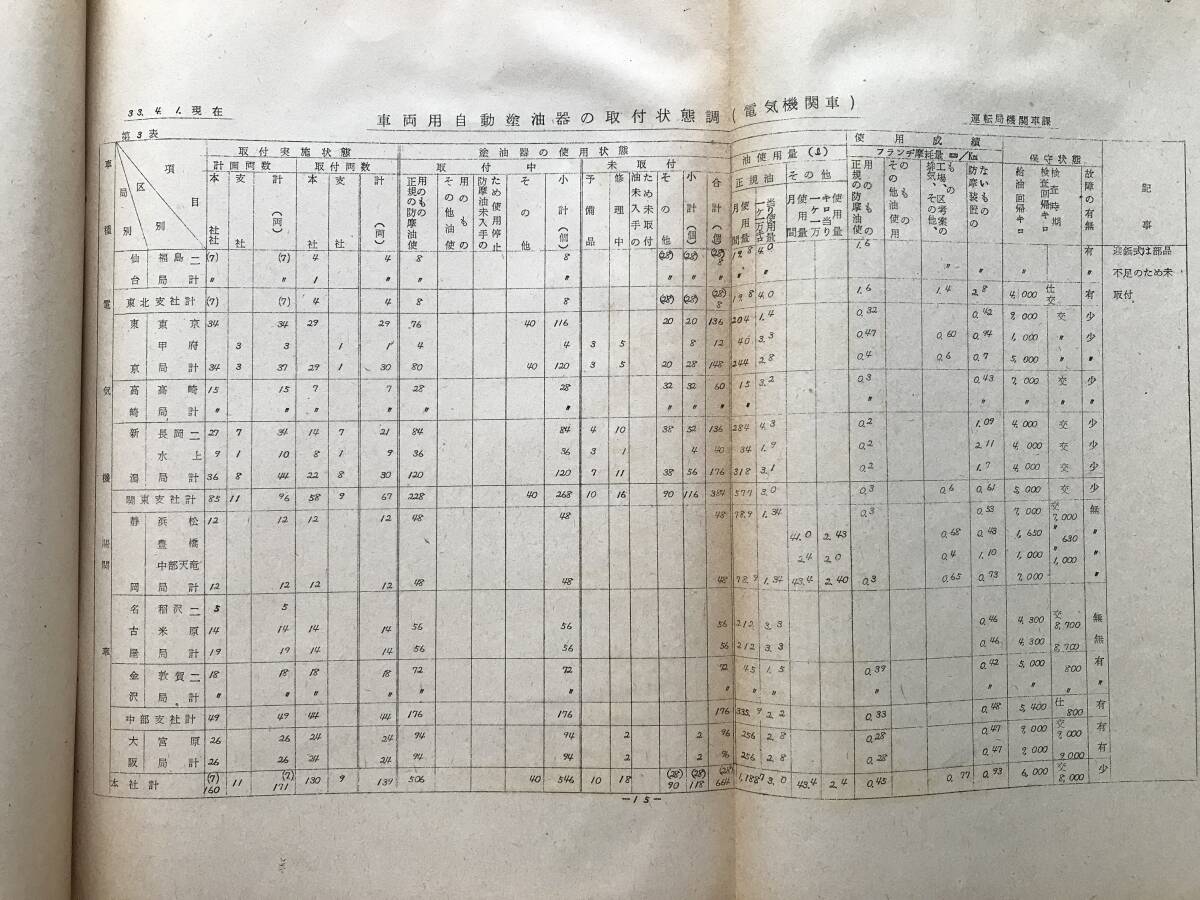 33.4.1.現在
車両用自動塗油器の取付状態調(電気機関車)
運転局機関車課
第3表
取付実施状態 塗油器の使用状態 使用成績
計画両数 取付両数 取付中 未取付 油使用量(ℓ) フランヂ摩耗量㎜/㎞ 保守状態
項目 局区別 車種別
本社 支社 計(両) 本社 支社 計(両) 正規の防摩油使用のもの その他油使用のもの 防摩油未入手のため使用停止 その他 小計(個) 予備品 修理中 油未入手のため未取付 その他 小計(個) 合計(個)
正規油 その他
月間使用量 一ヶ月一万キロ当り使用量
正規の防摩油使用のもの その他の油使用のもの 工場、区考案のもの 排気、その他、 防摩装置のないもの 給油回帰キロ 検査時期 検査回帰キロ 故障の有無 記事
電気機関車
仙 福島二 (7) (7) 4 4 8 8 (28) (28) (28) 8 19.8 4.0 1.6 有 遊鈑式は部品
台 局計 〃 〃 1 〃 〃 〃 〃 〃 〃 〃 〃 〃 不足のため未
東北支社計 (7) (7) 4 4 8 8 (28) (28) (28) 8 19.8 4.0 1.6 1.4 2.8 4,000 仕交 有 取付
東 東京 34 34 29 29 76 40 116 20 20 136 204 1.4 0.32 0.42 8,000 交 少
甲府 3 3 1 1 4 4 3 5 8 12 40 3.3 0.47 0.60 0.94 1,000 〃 〃
京 局計 34 3 37 29 1 30 80 40 120 3 5 20 28 148 244 2.8 0.4 0.6 0.7 5,000 〃 〃
高 高崎 15 15 7 7 28 28 32 32 60 15 3.2 0.3 0.43 7,000 交 少
崎 局計 〃 〃 〃 〃 〃 〃 〃 〃 〃 〃 〃 〃 〃 〃 〃 〃
新 長岡二 27 7 34 14 7 21 84 84 4 10 38 52 136 284 4.3 0.2 1.09 4,000 交 少
水上 9 1 10 8 1 9 36 36 3 1 4 40 34 1.9 0.2 2.11 4,000 交 少
潟 局計 36 8 44 22 8 30 120 120 7 11 38 56 176 318 3.1 0.2 1.7 4,000 交 少
関東支社計 85 11 96 58 9 67 228 40 268 10 16 90 116 384 577 3.0 0.3 0.6 0.61 5,000 交 少
静 浜松 12 12 12 12 48 48 48 78.9 1.34 0.3 0.53 7,000 交 7,000 無
豊橋 41.0 2.43 0.68 0.43 1,650 〃 630 〃
中部天竜 2.4 2.0 0.4 1.10 1,000 〃 1,000 〃
岡 局計 12 12 12 12 48 48 48 78.9 1.34 43.4 2.40 0.3 0.65 0.73 7,000 〃
名 稲沢二 5 5
古 米原 14 14 14 14 56 56 56 212 3.3 0.46 4,300 交 8,700 無
屋 局計 19 19 14 14 56 56 56 212 3.3 0.46 4,300 8,700 無
金 敦賀二 18 18 18 18 72 72 72 45 1.5 0.39 0.42 5,000 800 有
沢 局計 〃 〃 〃 〃 〃 〃 〃 〃 〃 〃 〃 〃 〃 〃
中部支社計 49 49 44 44 176 176 176 335.9 2.2 0.33 0.48 5,400 仕 800 有
大 宮原 26 26 24 24 94 94 2 2 96 256 2.8 0.28 0.47 9,000 交 9,000 有
阪 局計 26 26 24 24 94 94 2 2 96 256 2.8 0.28 0.47 9,000 9,000 有
本社計 (7) 160 11 (7) 171 130 9 139 506 40 546 10 18 (28) 90 (28) 118 (28) 664 1,188.7 3.0 43.4 2.4 0.45 0.77 0.93 6,000 交 8,000 少
—15—